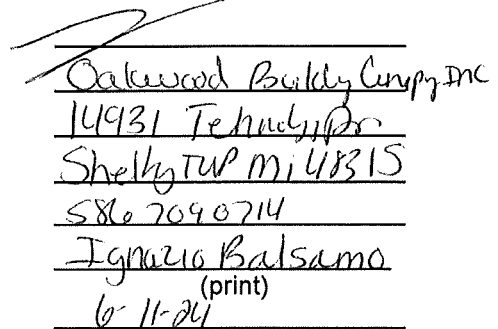 Oakwood Building Company Inc
14931 Technology Dr
Shelby TWP Mi 48315
586 709 0714
Ignazio Balsamo
(print)
6-11-24